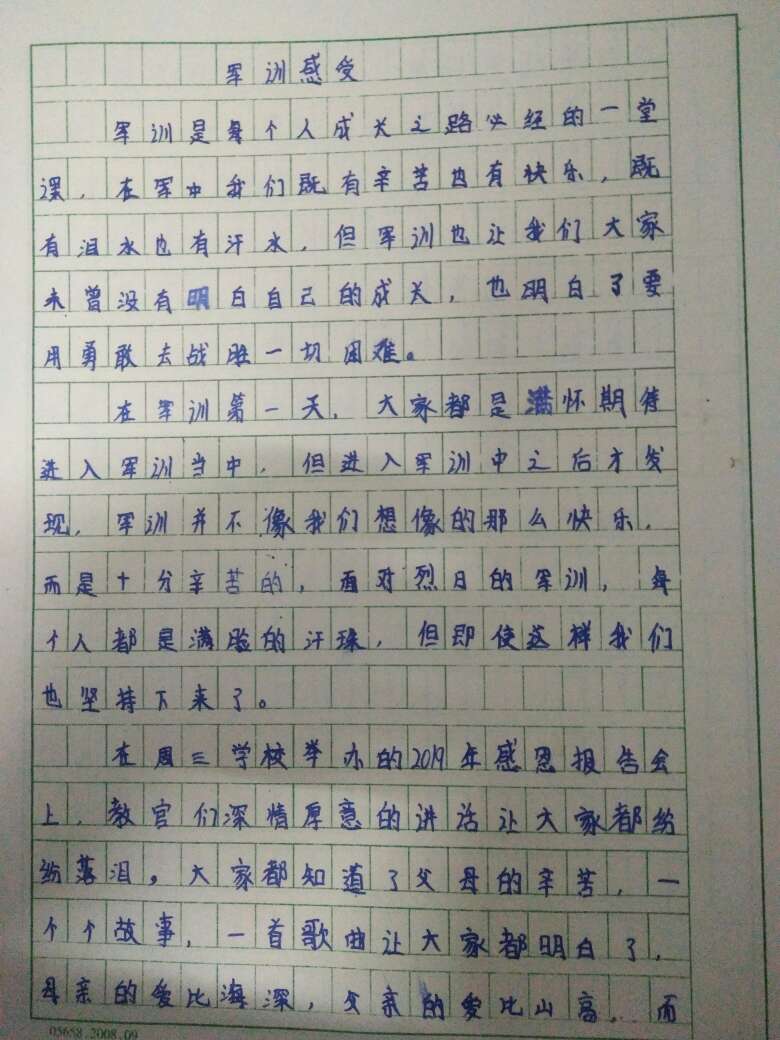 军训感受
军训是每个人成长之路必经的一堂
课，在军中我们既有辛苦也有快乐，既
有泪水也有汗水，但军训也让我们大家
未曾没有明白自己的成长，也明白了要
用勇敢去战胜一切困难。
在军训第一天，大家都是满怀期待
进入军训当中，但进入军训中之后才发
现，军训并不像我们想像的那么快乐，
而是十分辛苦的，面对烈日的军训，每
个人都是满脸的汗珠，但即使这样我们
也坚持下来了。
在周三学校举办的2019年感恩报告会
上，教官们深情厚意的讲话让大家都纷
纷落泪，大家都知道了父母的辛苦，一
个个故事，一首歌曲让大家都明白了，
母亲的爱比海深，父亲的爱比山高，而
05658.2008.09